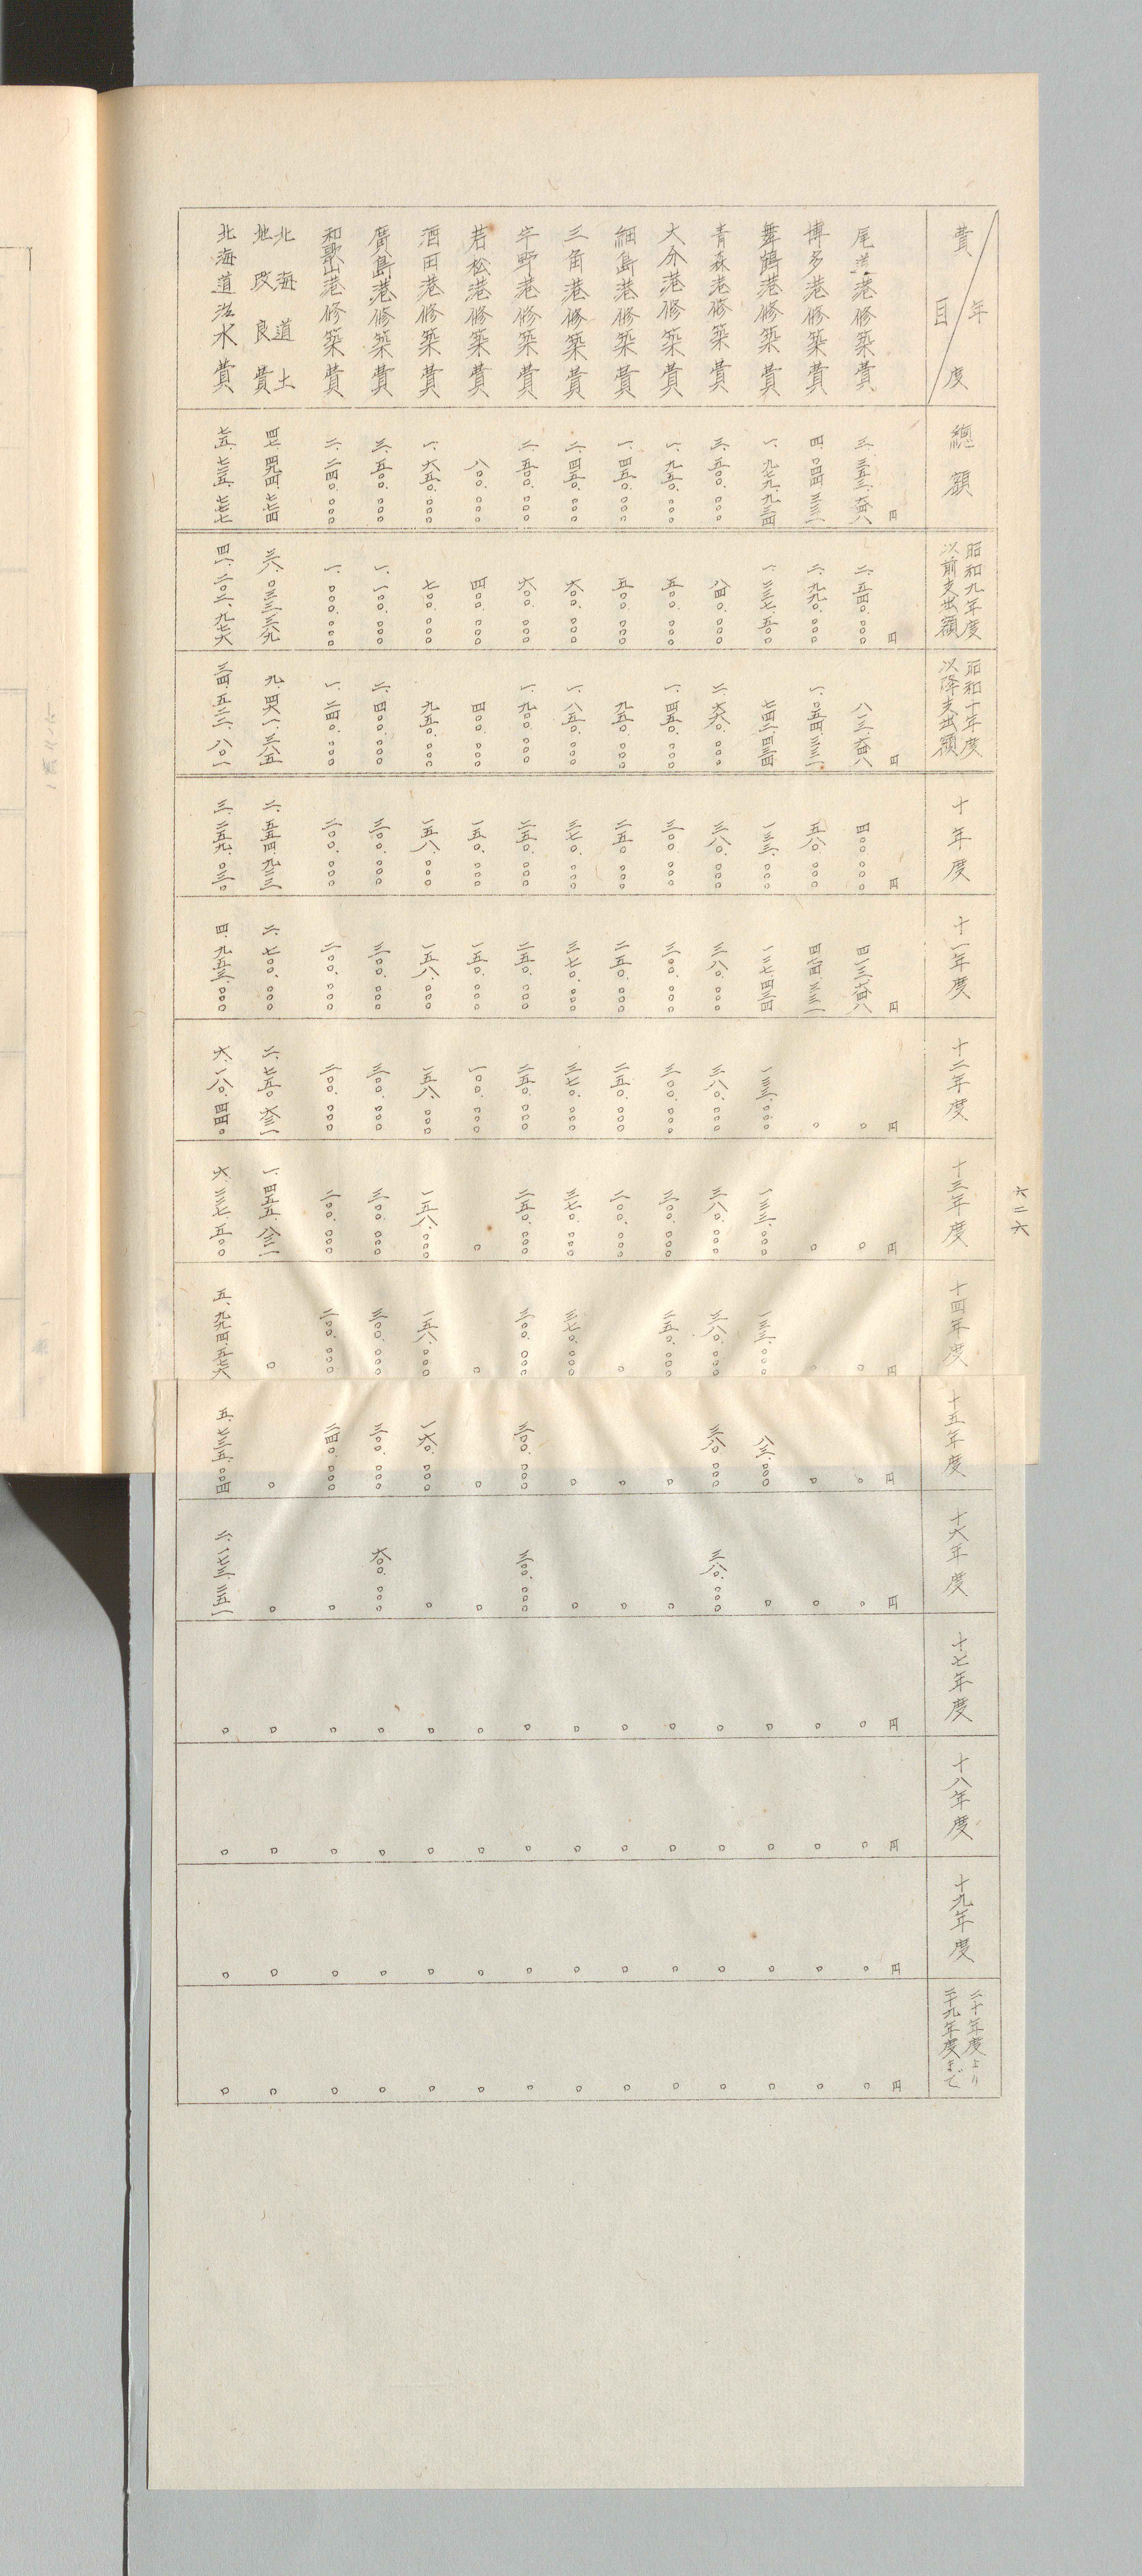 六二六
年度 費目 總額 昭和九年度以前支出額 昭和十年度以降支出額 十年度 十一年度 十二年度 十三年度 十四年度 十五年度 十六年度 十七年度 十八年度 十九年度 二十年度より二十九年度まで
円 円 円 円 円 円 円 円 円 円 円 円 円 円
尾道港修築費 三.三五三.六四八 二.五四〇.〇〇〇 八一三.六四八 四〇〇.〇〇〇 四一三.六四八 〇 〇 〇 〇 〇 〇 〇 〇 〇
博多港修築費 四.〇四四.三三一 二.九九〇.〇〇〇 一.〇五四.三三一 五八〇.〇〇〇 四七四.三三一 〇 〇 〇 〇 〇 〇 〇 〇 〇
舞鶴港修築費 一.九七九.九三四 一.二三七.五〇〇 七四二.四三四 一三三.〇〇〇 一二七.四三四 一三三.〇〇〇 一三三.〇〇〇 一三三.〇〇〇 八三.〇〇〇 〇 〇 〇 〇 〇
青森港修築費 三.五〇〇.〇〇〇 八四〇.〇〇〇 二.六六〇.〇〇〇 三八〇.〇〇〇 三八〇.〇〇〇 三八〇.〇〇〇 三八〇.〇〇〇 三八〇.〇〇〇 三八〇.〇〇〇 三八〇.〇〇〇 〇 〇 〇 〇
大分港修築費 一.九五〇.〇〇〇 五〇〇.〇〇〇 一.四五〇.〇〇〇 三〇〇.〇〇〇 三〇〇.〇〇〇 三〇〇.〇〇〇 三〇〇.〇〇〇 二五〇.〇〇〇 〇 〇 〇 〇 〇 〇
細島港修築費 一.四五〇.〇〇〇 五〇〇.〇〇〇 九五〇.〇〇〇 二五〇.〇〇〇 二五〇.〇〇〇 二五〇.〇〇〇 二〇〇.〇〇〇 〇 〇 〇 〇 〇 〇 〇
三角港修築費 二.四五〇.〇〇〇 六〇〇.〇〇〇 一.八五〇.〇〇〇 三七〇.〇〇〇 三七〇.〇〇〇 三七〇.〇〇〇 三七〇.〇〇〇 三七〇.〇〇〇 〇 〇 〇 〇 〇 〇
宇野港修築費 二.五〇〇.〇〇〇 六〇〇.〇〇〇 一.九〇〇.〇〇〇 二五〇.〇〇〇 二五〇.〇〇〇 二五〇.〇〇〇 二五〇.〇〇〇 三〇〇.〇〇〇 三〇〇.〇〇〇 三〇〇.〇〇〇 〇 〇 〇 〇
若松港修築費 八〇〇.〇〇〇 四〇〇.〇〇〇 四〇〇.〇〇〇 一五〇.〇〇〇 一五〇.〇〇〇 一〇〇.〇〇〇 〇 〇 〇 〇 〇 〇 〇 〇
酒田港修築費 一.六五〇.〇〇〇 七〇〇.〇〇〇 九五〇.〇〇〇 一五八.〇〇〇 一五八.〇〇〇 一五八.〇〇〇 一五八.〇〇〇 一五八.〇〇〇 一六〇.〇〇〇 〇 〇 〇 〇 〇
廣島港修築費 三.五〇〇.〇〇〇 一.一〇〇.〇〇〇 二.四〇〇.〇〇〇 三〇〇.〇〇〇 三〇〇.〇〇〇 三〇〇.〇〇〇 三〇〇.〇〇〇 三〇〇.〇〇〇 三〇〇.〇〇〇 六〇〇.〇〇〇 〇 〇 〇 〇
和歌山港修築費 二.二四〇.〇〇〇 一.〇〇〇.〇〇〇 一.二四〇.〇〇〇 二〇〇.〇〇〇 二〇〇.〇〇〇 二〇〇.〇〇〇 二〇〇.〇〇〇 二〇〇.〇〇〇 二四〇.〇〇〇 〇 〇 〇 〇 〇
北海道土地改良費 四七.四九四.七七四 三八.〇三三.三八九 九.四六一.三八五 二.五五四.九三三 二.七〇〇.〇〇〇 二.七五〇.六三一 一.四五五.八二一 〇 〇 〇 〇 〇 〇 〇
北海道治水費 七五.七三五.七七七 四一.二〇二.九七六 三四.五三二.八〇一 三.二五九.〇三〇 四.九五三.〇〇〇 六.一八〇.四四〇 六.二三七.五〇〇 五.九九四.五七六 五.七三五.〇〇四 二.一七三.二五一 〇 〇 〇 〇